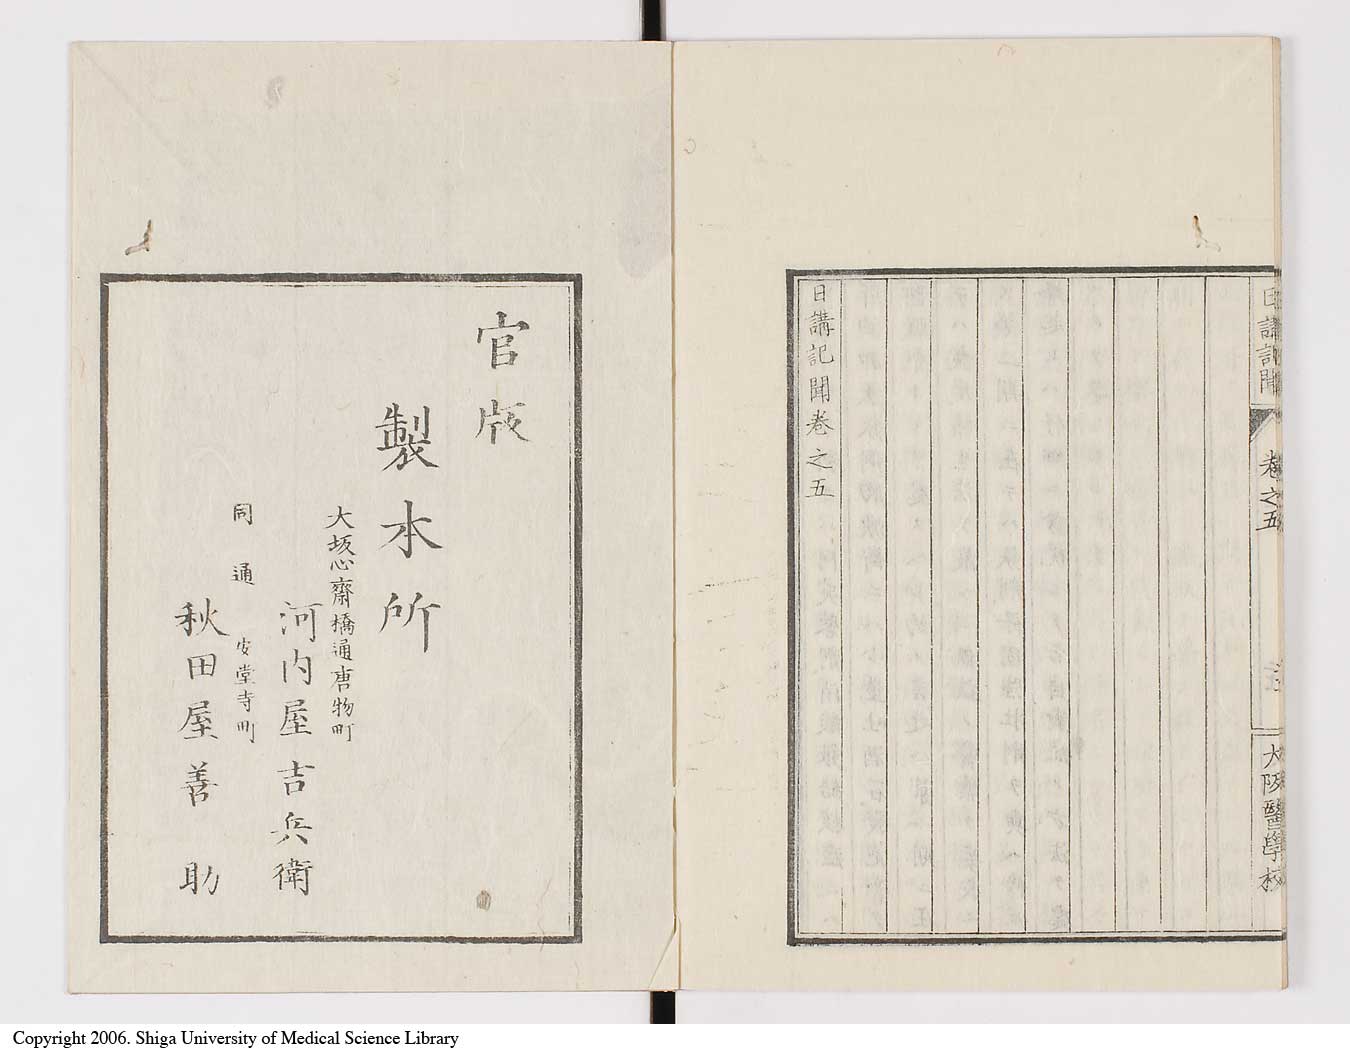 日講記聞
卷之五
大阪醫學校
日講記聞卷之五
官版
製本所
大坂心齋橋通唐物町
河内屋吉兵衛
同通安堂寺町
秋田屋善助
Copyright 2006. Shiga University of Medical Science Library